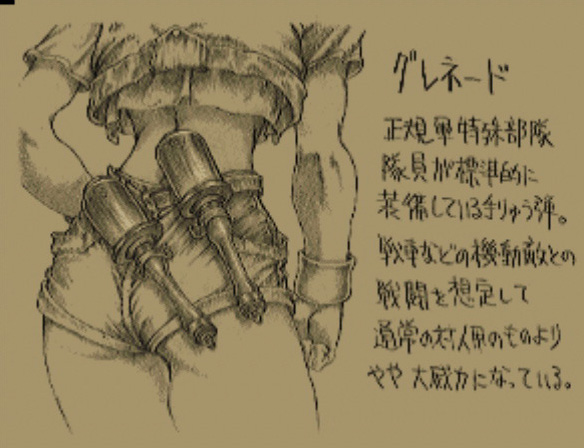 グレネード
正規軍特殊部隊
隊員が標準的に
装備している手りゅう弾。
戦車などの機動敵との
戦闘を想定して
通常の対人用のものより
やや大威力になっている。